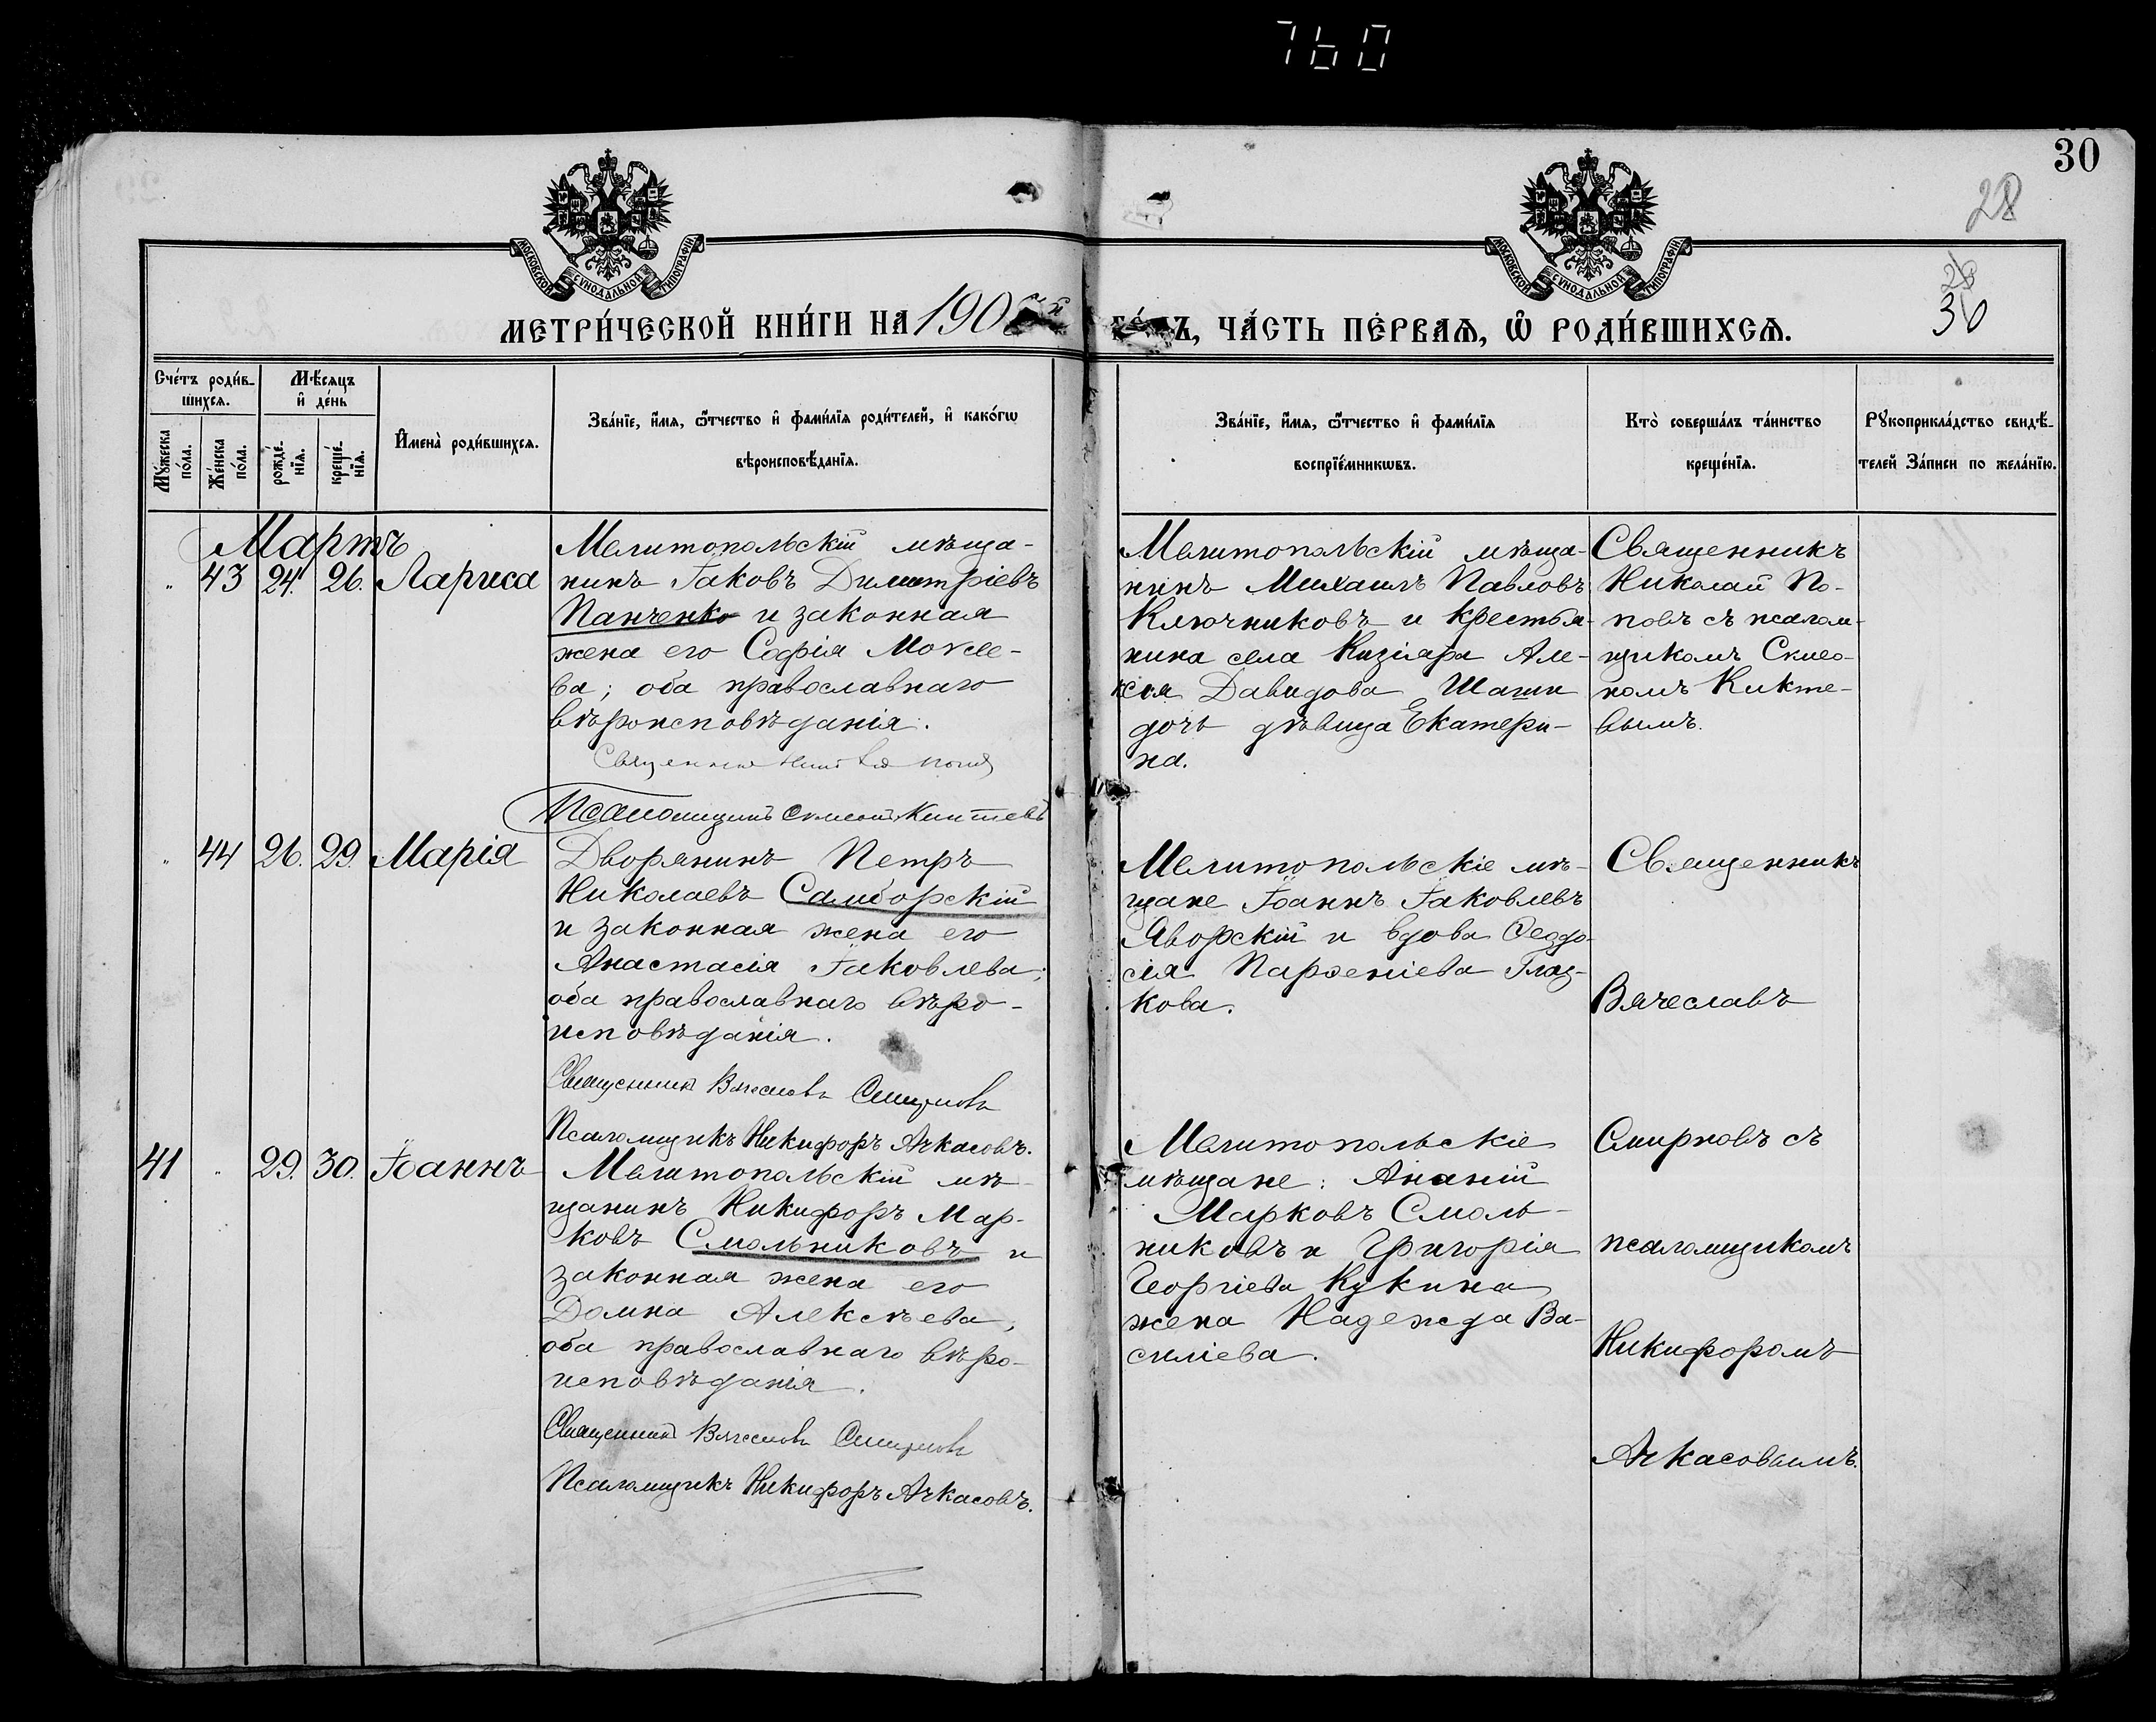 760
30
28
28
30
МОСКОВСКОЙ СѴНОДАЛЬНОЙ ТИПОГРАФІИ
МОСКОВСКОЙ СѴНОДАЛЬНОЙ ТИПОГРАФІИ
МЕТРИ́ЧЕСКОЙ КНИ́ГИ НА 190
ЧА́СТЬ ПЕ́РВАѦ, Ѡ҆ РОДИ́ВШИХСѦ.
Сче́тъ роди́в-
шихсѧ.
Мѣ́сѧцъ
и҆ де́нь
Мꙋ́жеска
по́ла.
Же́нска
по́ла.
рожде́-
нїѧ.
креще́-
нїѧ.
И҆мена̀ роди́вшихсѧ.
Зва́нїе, и҆́мѧ, ѻ҆́тчество и҆ фами́лїѧ роди́телей, и҆ како́гѡ
вѣроисповѣ́данїѧ.
Зва́нїе, и҆́мѧ, ѻ҆́тчество и҆ фами́лїѧ
воспрїе́мникѡвъ.
Кто̀ соверша́лъ та́инство
креще́нїѧ.
Рꙋкоприкла́дство свидѣ́-
телей За́писи по жела́нїю.
Мартъ
„ 43 24. 26. Лариса
Мелитопольскій мѣща-
нинъ Іаковъ Димитріевъ
Панченко и законная
жена его Софія Моисее-
ва; оба православнаго
вѣроисповѣданія.
Псаломщикъ Симеонъ Киктевъ
Мелитопольскій мѣща-
нинъ Михаилъ Павловъ
Ключниковъ и крестья-
нина села Кизіяра Але-
ксія Давидова Шаши
дочь дѣвица Екатери-
на.
Священникъ
Николай По-
повъ съ псалом-
щикомъ Симео-
номъ Кикте-
вымъ.
„ 44 26. 29. Марія
Дворянинъ Петръ
Николаевъ Самборскій
и законная жена его
Анастасія Іаковлева;
оба православнаго вѣро-
исповѣданія.
Священникъ Вячеславъ Смирновъ
Псаломщикъ Никифоръ Ачкасовъ.
Мелитопольскіе мѣ-
щане Іоаннъ Іаковлевъ
Яворскій и вдова Ѳеодо-
сія Парѳеніева Глад-
кова.
Священникъ
Вячеславъ
41 „ 29. 30. Іоаннъ
Мелитопольскій мѣ-
щанинъ Никифоръ Мар-
ковъ Смольниковъ и
законная жена его
Домна Алексѣева;
оба православнаго вѣро-
исповѣданія.
Священникъ Вячеславъ Смирновъ
Псаломщикъ Никифоръ Ачкасовъ.
Мелитопольскіе
мѣщане: Ананій
Марковъ Смоль-
никовъ и Григорія
Георгіева Кукина
жена Надежда Ва-
силіева.
Смирновъ съ
псаломщикомъ
Никифоромъ
Ачкасовымъ.